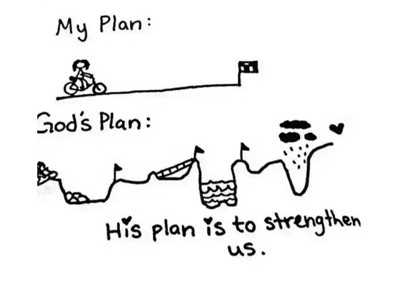 My Plan:
God's Plan:
His plan is to strengthen
us.